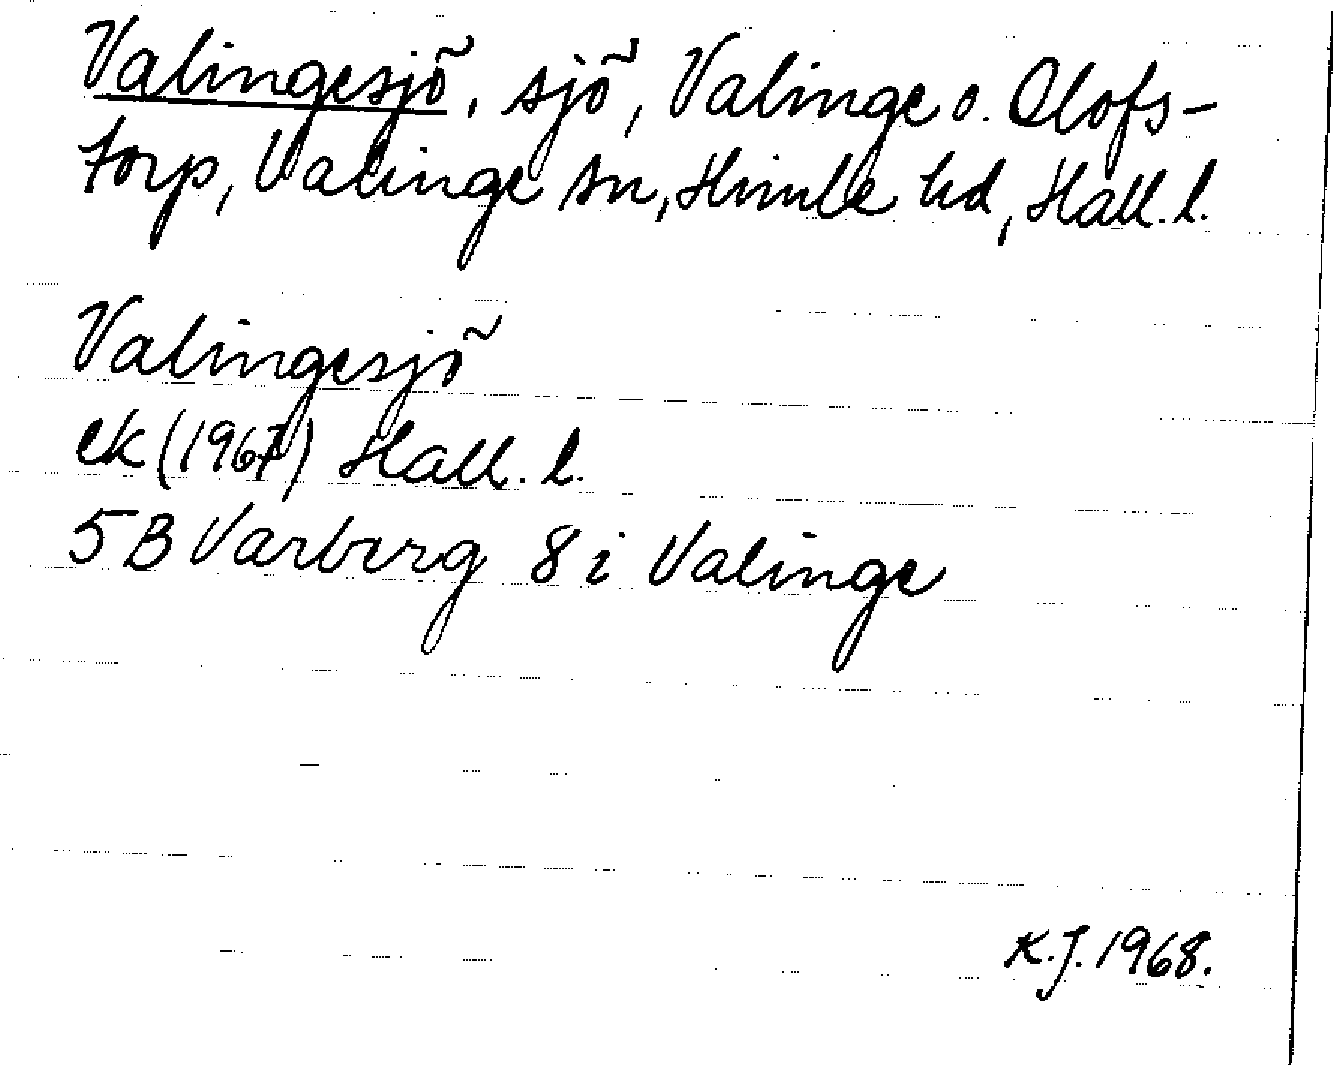 Valingesjö, sjö, Valinge o. Olofs-
torp, Valinge sn, Himle hd, Hall. l.
Valingesjö
ek (1967) Hall. l.
5B Varberg 8 i Valinge
K.J. 1968.